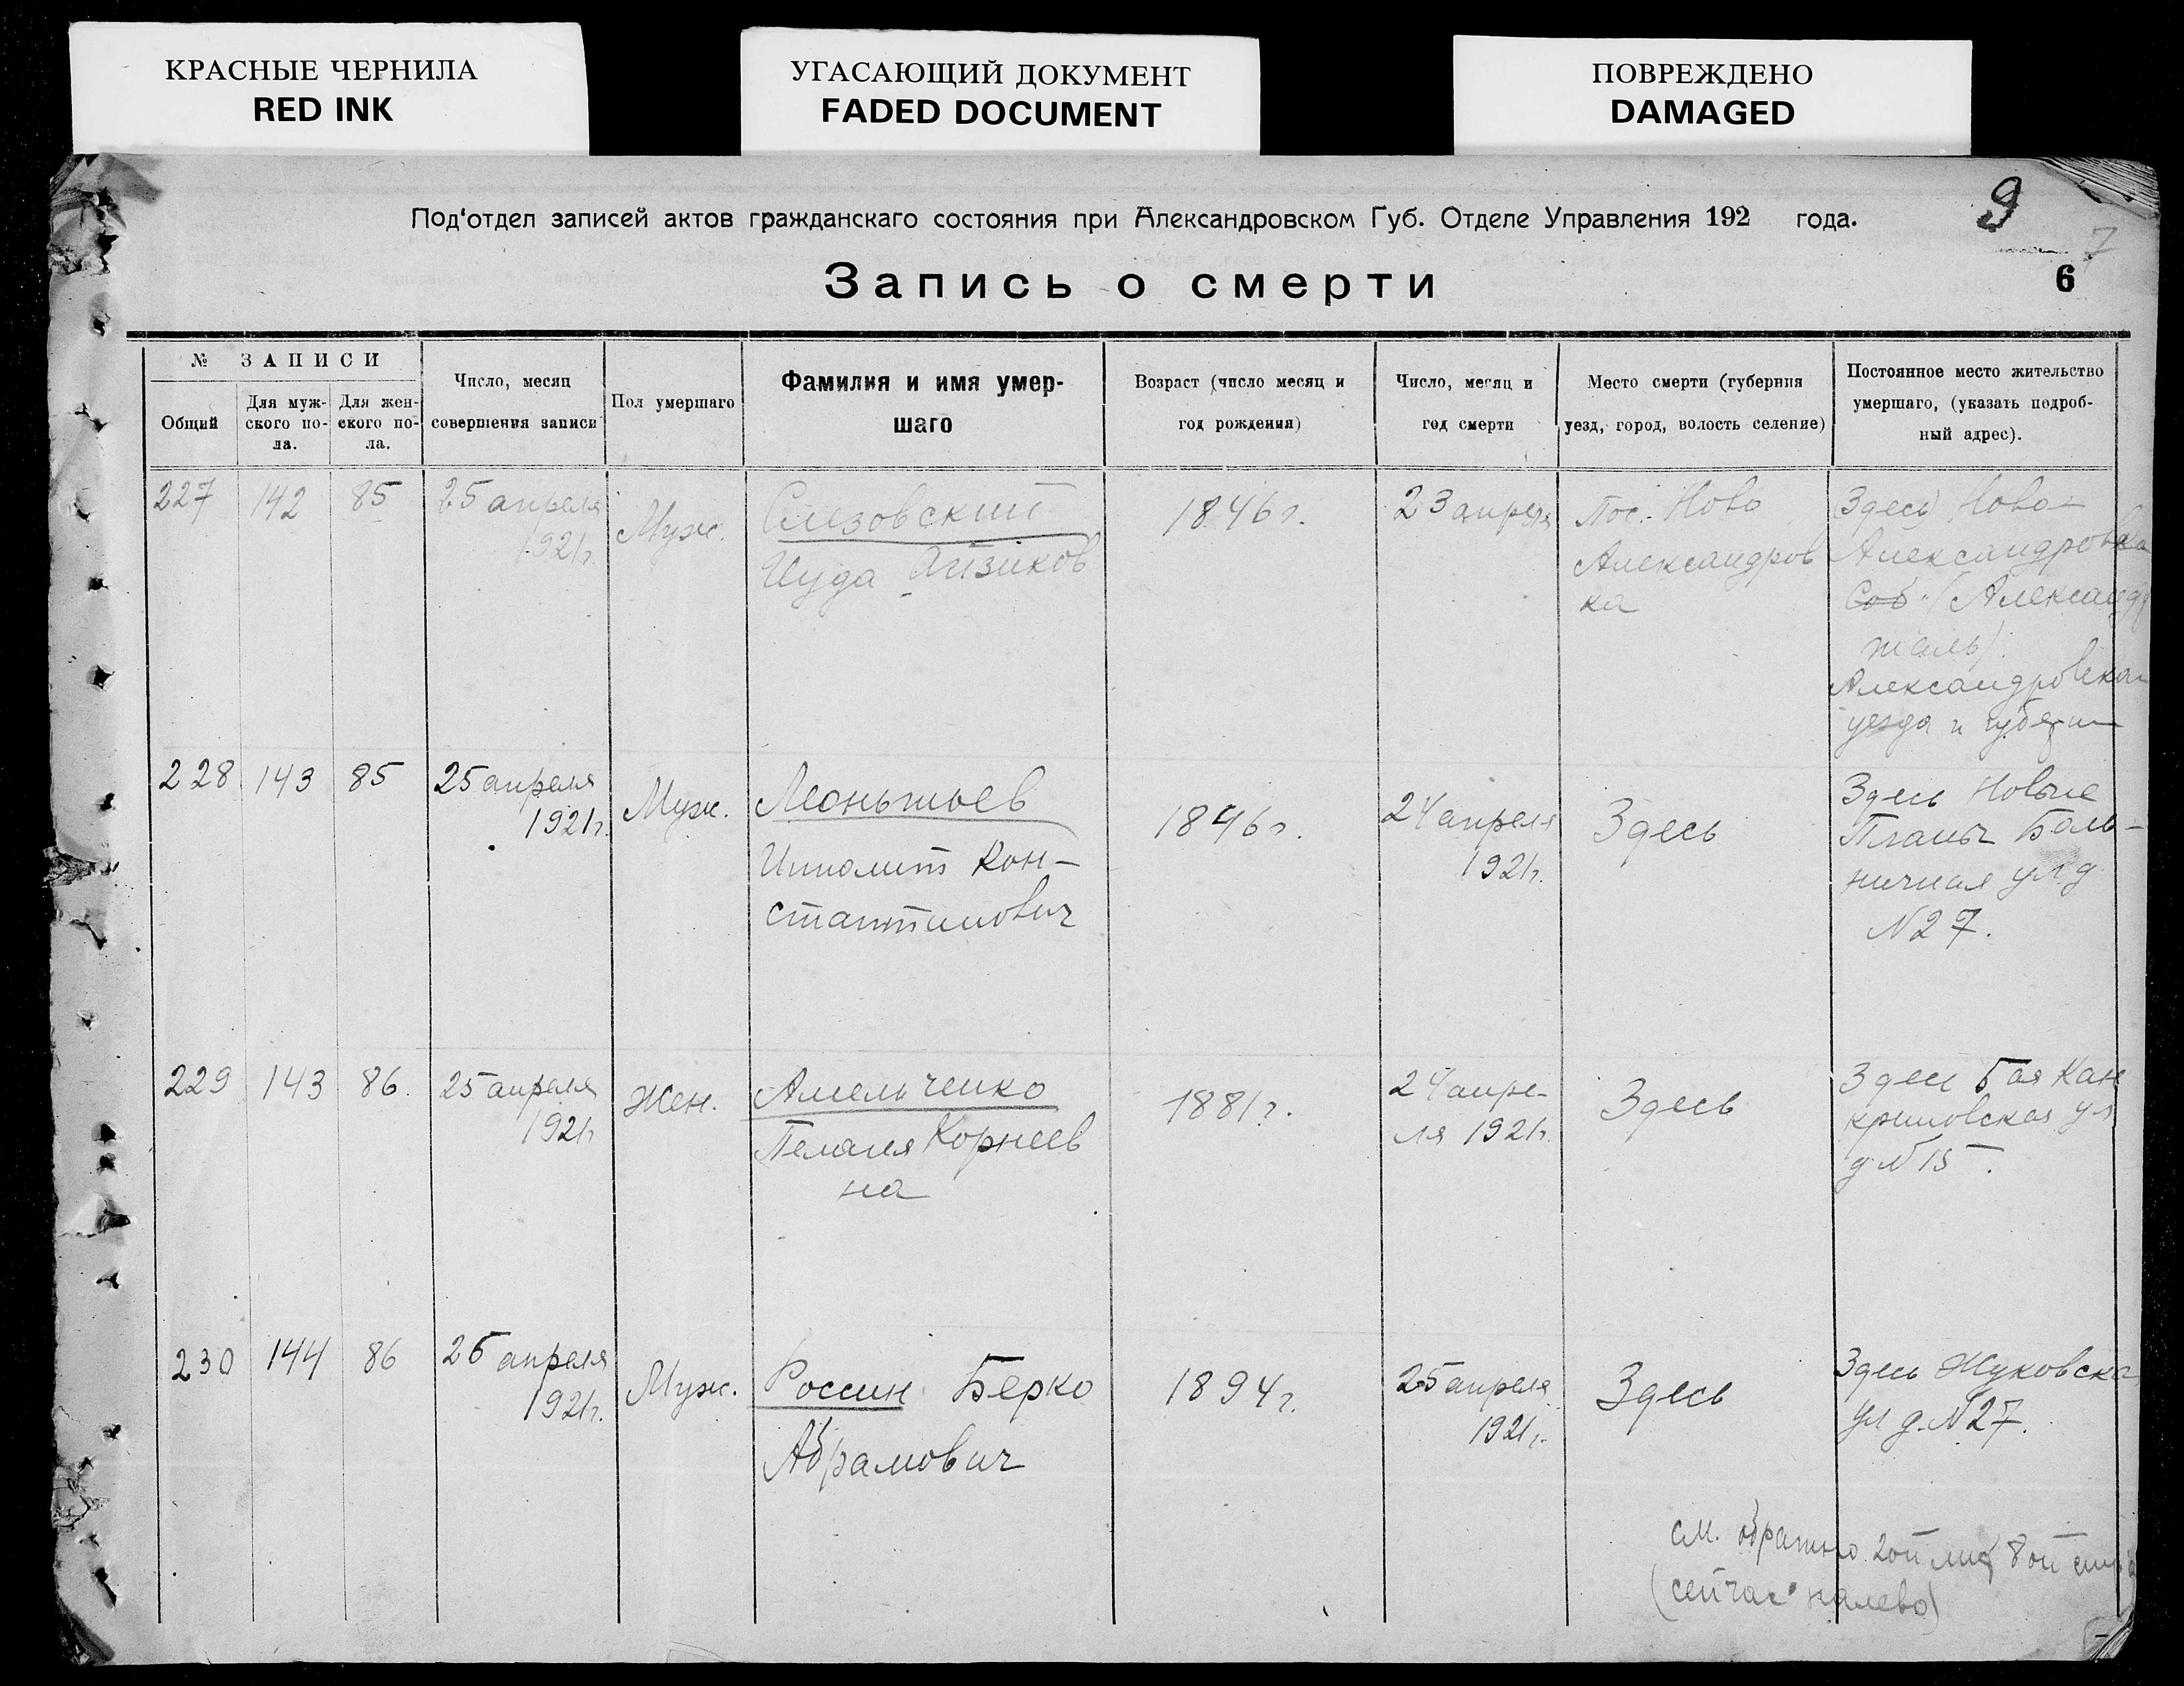 КРАСНЫЕ ЧЕРНИЛА
RED INK
УГАСАЮЩИЙ ДОКУМЕНТ
FADED DOCUMENT
ПОВРЕЖДЕНО
DAMAGED
Под'отдел записей актов гражданскаго состояния при Александровском Губ. Отделе Управления 192 года.
9
7
Запись о смерти
6
№ ЗАПИСИ
Общий
Для муж-
ского по-
ла.
Для жен-
ского по-
ла.
Число, месяц
совершения записи
Пол умершаго
Фамилия и имя умер-
шаго
Возраст (число месяц и
год рождения)
Число, месяц и
год смерти
Место смерти (губерния
уезд, город, волость селение)
Постоянное место жительство
умершаго, (указать подроб-
ный адрес).
227
142
85
25 апреля
1921г.
Муж.
Слезовский
Иуда Айзиков
1846г.
23 апреля
Пос. Ново
Александров
ка
Здесь Ново-
Александровка
Александровская
уезда и губерни
228
143
85
25 апреля
1921г.
Муж.
Леонтьев
Ипполит Кон-
стантинович
1846г.
24 апреля
1921г.
Здесь
Здесь Новые
Планы Боль-
ничная ул д
N27.
229
143
86.
25 апреля
1921г
Жен.
Амельченко
Пелагея Корнеев
на
1881г.
24 апре-
ля 1921г.
Здесь
Здесь Бая Кан
криновская ул
д N15.
230
144
86
26 апреля
1921г.
Муж.
Россин Берко
Абрамович
1894г.
25 апреля
1921г.
Здесь
Здесь Жуковска
ул д. N27.
см. обратно 2ой 8ой
(сейчас налево)